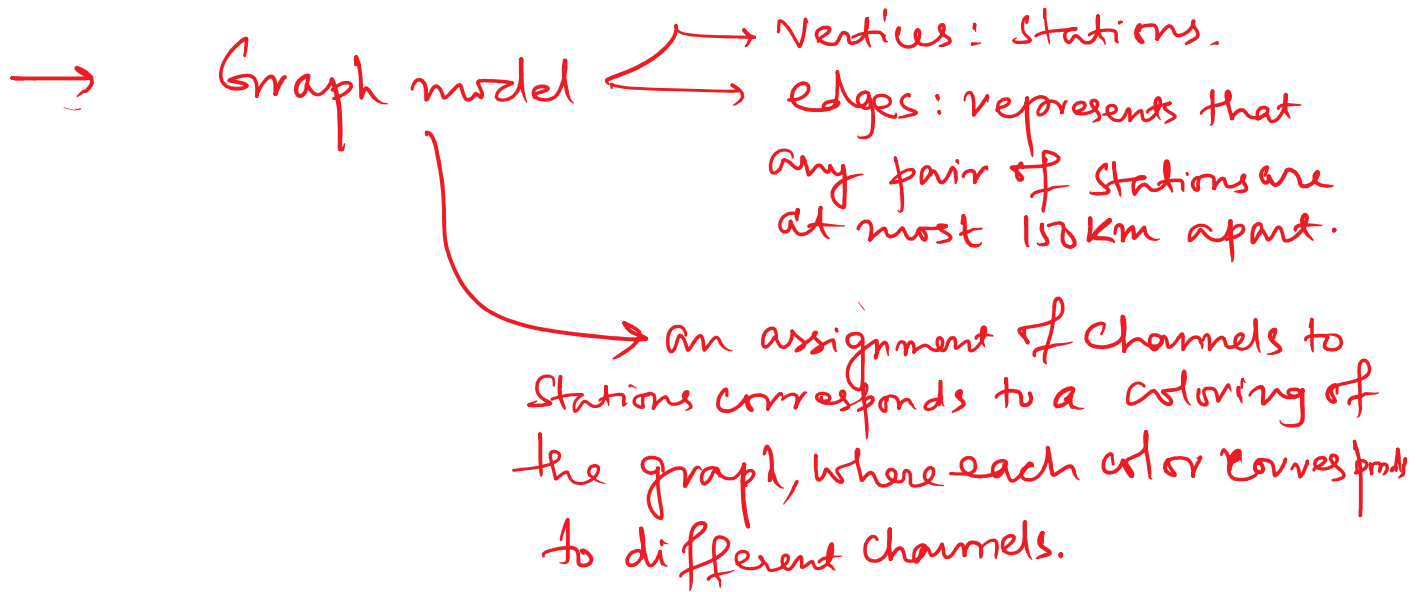 → Graph model → Vertices: Stations.
→ edges: represents that
any pair of stations are
at most 150 km apart.
→ an assignment of channels to
Stations corresponds to a coloring of
the graph, where each color corresponds
to different channels.